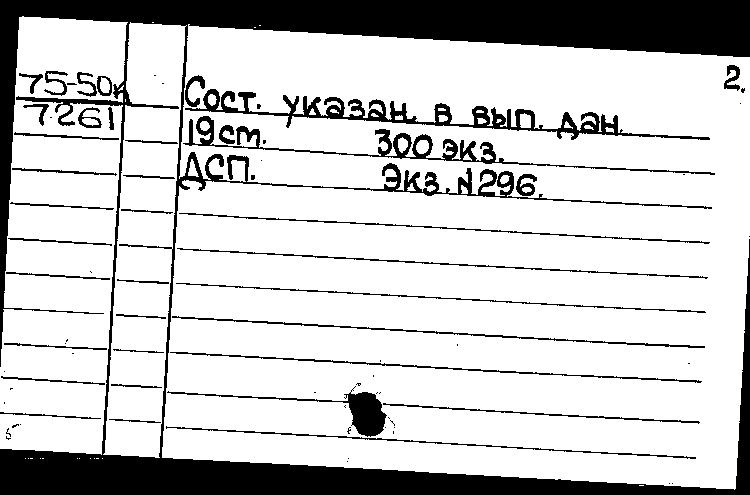 2.
75-50к
7261
Сост. указан. в вып. дан.
19 см. 300 экз.
ДСП. Экз. №296.